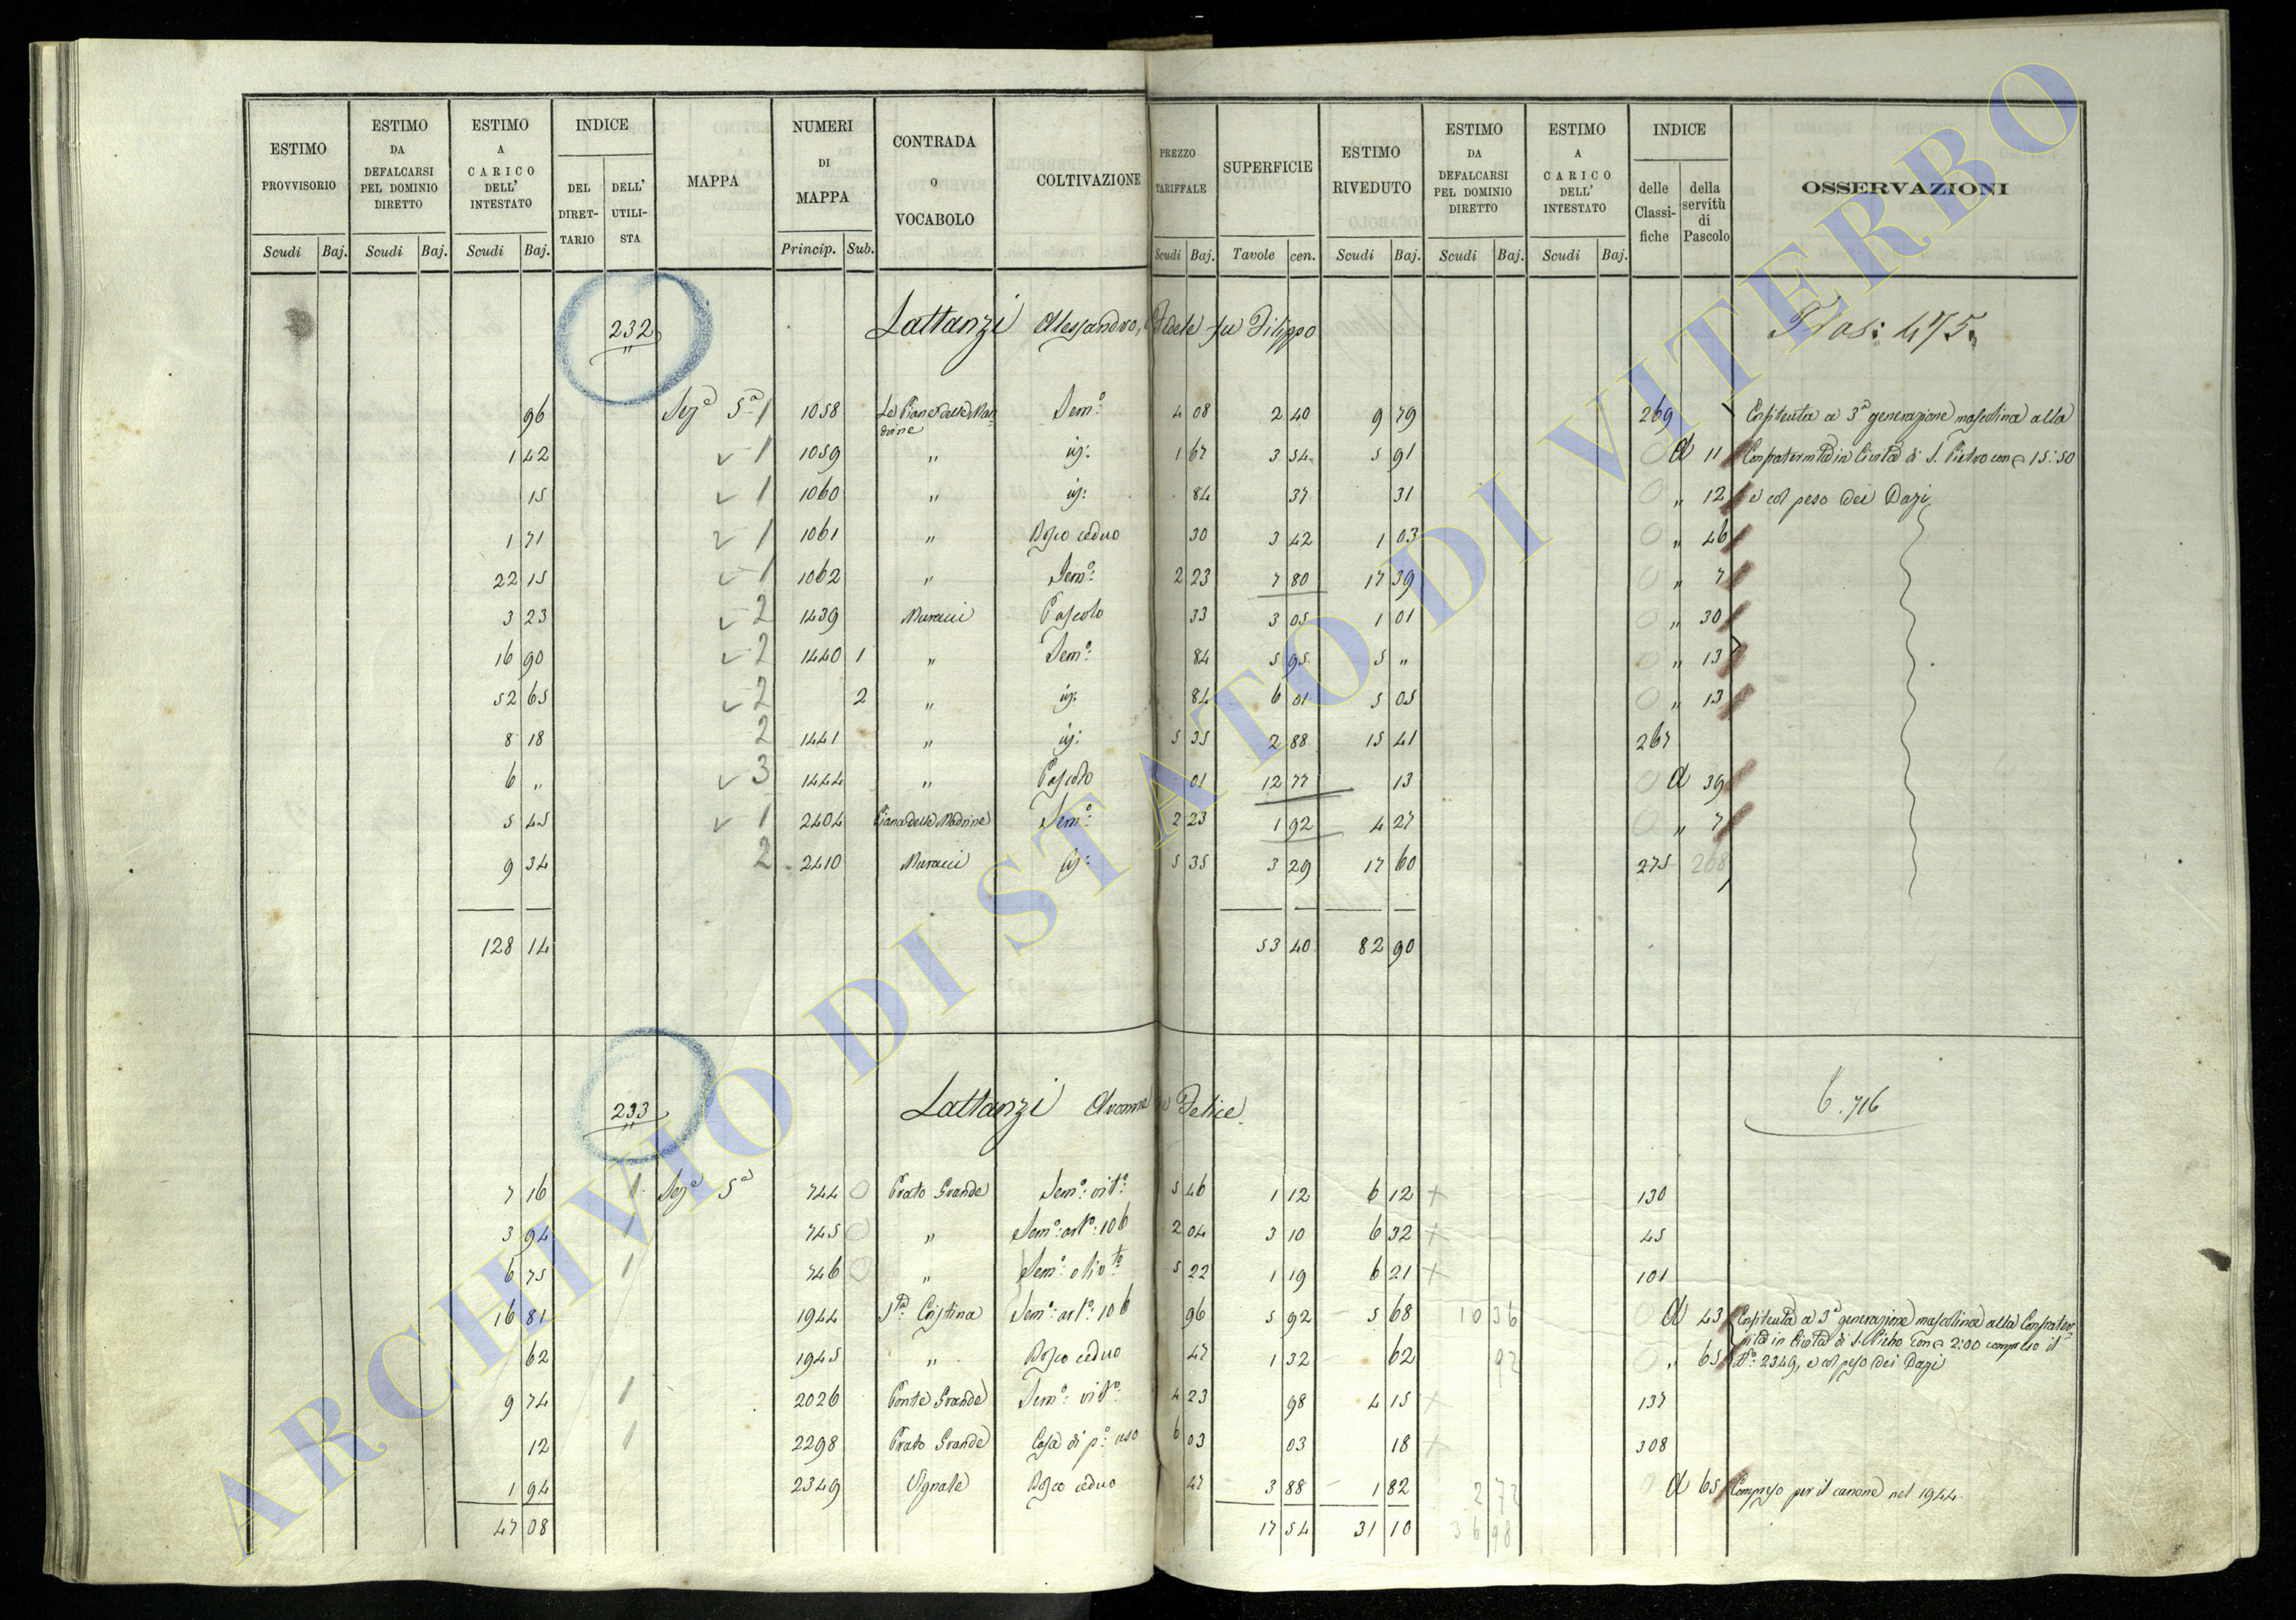 ESTIMO PROVVISORIO Scudi Baj.
ESTIMO DA DEFALCARSI PEL DOMINIO DIRETTO Scudi Baj.
ESTIMO A CARICO DELL' INTESTATO Scudi Baj.
INDICE DEL DIRETTARIO DELL' UTILISTA
MAPPA
NUMERI DI MAPPA Princip. Sub.
CONTRADA O VOCABOLO
COLTIVAZIONE
PREZZO TARIFFALE Scudi Baj.
SUPERFICIE Tavole cen.
ESTIMO RIVEDUTO Scudi Baj.
ESTIMO DA DEFALCARSI PEL DOMINIO DIRETTO Scudi Baj.
ESTIMO A CARICO DELL' INTESTATO Scudi Baj.
INDICE delle Classifiche della servitù di Pascolo
OSSERVAZIONI
232 Lattanzi Alessandro, Fedele fu Filippo Tras: 475
96 Sez.e 5a 1 1058 Le Piane delle Mandrine Sem.o 4 08 2 40 9 79 269 Enfiteuta a 3a generazione mascolina alla
1 42 1 1059 " id: 1 67 3 54 5 91 a 11 Confraternita in Civita di S. Pietro con 15:50
15 1 1060 " id: 84 37 31 " 12 e col peso dei Dazi
1 71 1 1061 " Bosco ceduo 30 3 42 1 03 " 46
22 15 1 1062 " Sem.o 2 23 7 80 17 39 " 7
3 23 2 1439 Muracci Pascolo 33 3 05 1 01 " 30
16 90 2 1440 1 " Sem.o 84 5 95 5 " " 13
52 65 2 2 " id: 84 6 01 5 05 " 13
8 18 2 1441 " id: 5 35 2 88 15 41 267
6 " 3 1444 " Pascolo 01 12 77 13 a 39
5 45 1 2404 Piana delle Madrine Sem.o 2 23 1 92 4 27 " 7
9 34 2 2410 Muracci id: 5 35 3 29 17 60 275 268
128 14 53 40 82 90
233 Lattanzi Felice 6.716
7 16 1 Sez.e 5a 744 Prato Grande Sem.o vit.o 5 46 1 12 6 12 130
3 94 1 745 " Sem.o art.o 106 2 04 3 10 6 32 45
6 75 1 746 " Sem.o oliv.to 5 22 1 19 6 21 101
16 81 1944 S.ta Cristina Sem.o art.o 106 96 5 92 5 68 10 36 a 43 Enfiteuta a 3a generazione mascolina alla Confrater
nita in Civita di S. Pietro con 2:00 compreso il
62 1945 " Bosco ceduo 47 1 32 62 92 " 65 N.o 2349, e col peso dei Dazi
9 74 1 2026 Ponte Grande Sem.o vit.o 4 23 98 4 15 137
12 1 2298 Prato Grande Casa di p.o uso 6 03 03 18 308
1 94 2349 Vignale Bosco ceduo 47 3 88 1 82 2 72 a 65 Compreso per il canone nel 1944
47 08 17 54 31 10 36 98
ARCHIVIO DI STATO DI VITERBO